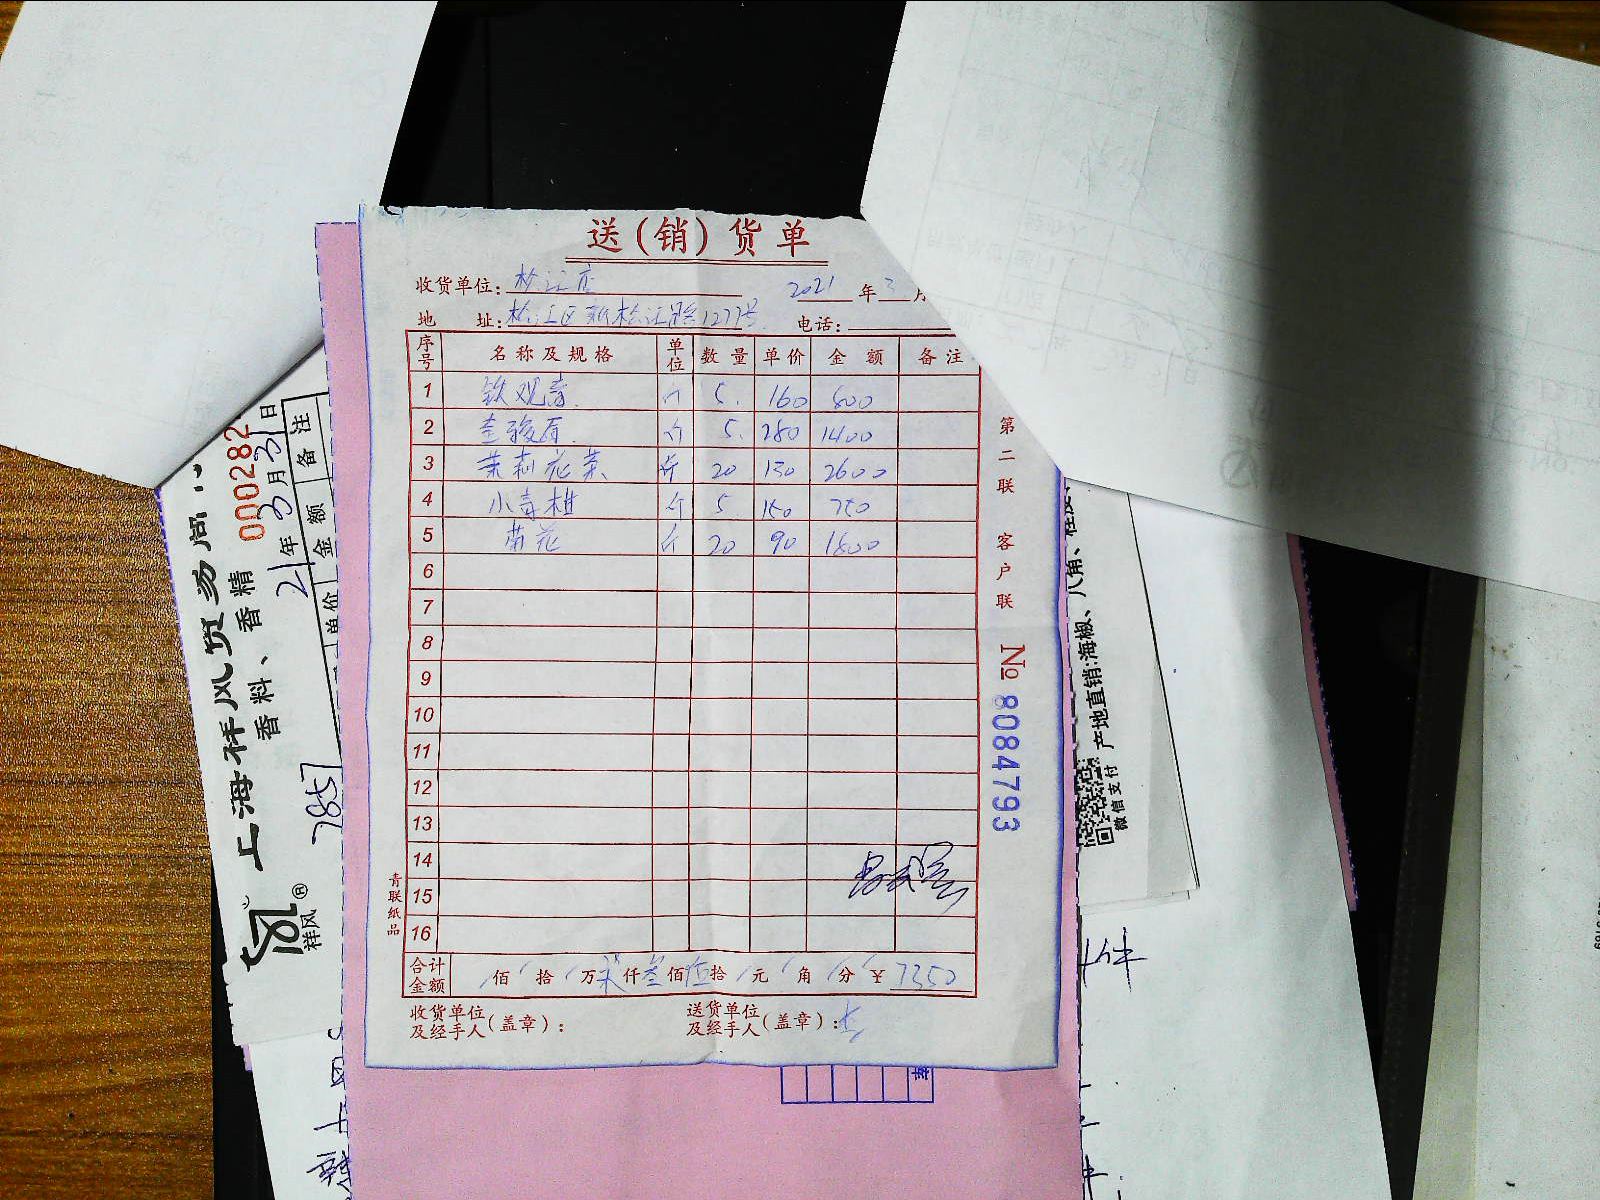 送(销)货单
收货单位: 松江店 2021 年 3 月
地 址: 松江区新松江路1277号 电话:
序号 名称及规格 单位 数量 单价 金额 备注
1 铁观音 斤 5. 160 800
2 金骏眉 斤 5. 280 1400
3 茉莉花茶 斤 20 130 2600
4 小青柑 斤 5 150 750
5 菊花 斤 20 90 1800
6
7
8
9
10
11
12
13
14
15
16
合计金额 佰 拾 万 柒 仟 叁 佰 伍 拾 元 角 分 ¥ 7350
收货单位及经手人(盖章):
送货单位及经手人(盖章):
第二联 客户联
No 8084793
青联纸品
上海祥风贸易商
香料、香精
000282
21年3月31日
单价 金额 备注
祥风®
产地直销:海椒、八角、桂
微信支付
件